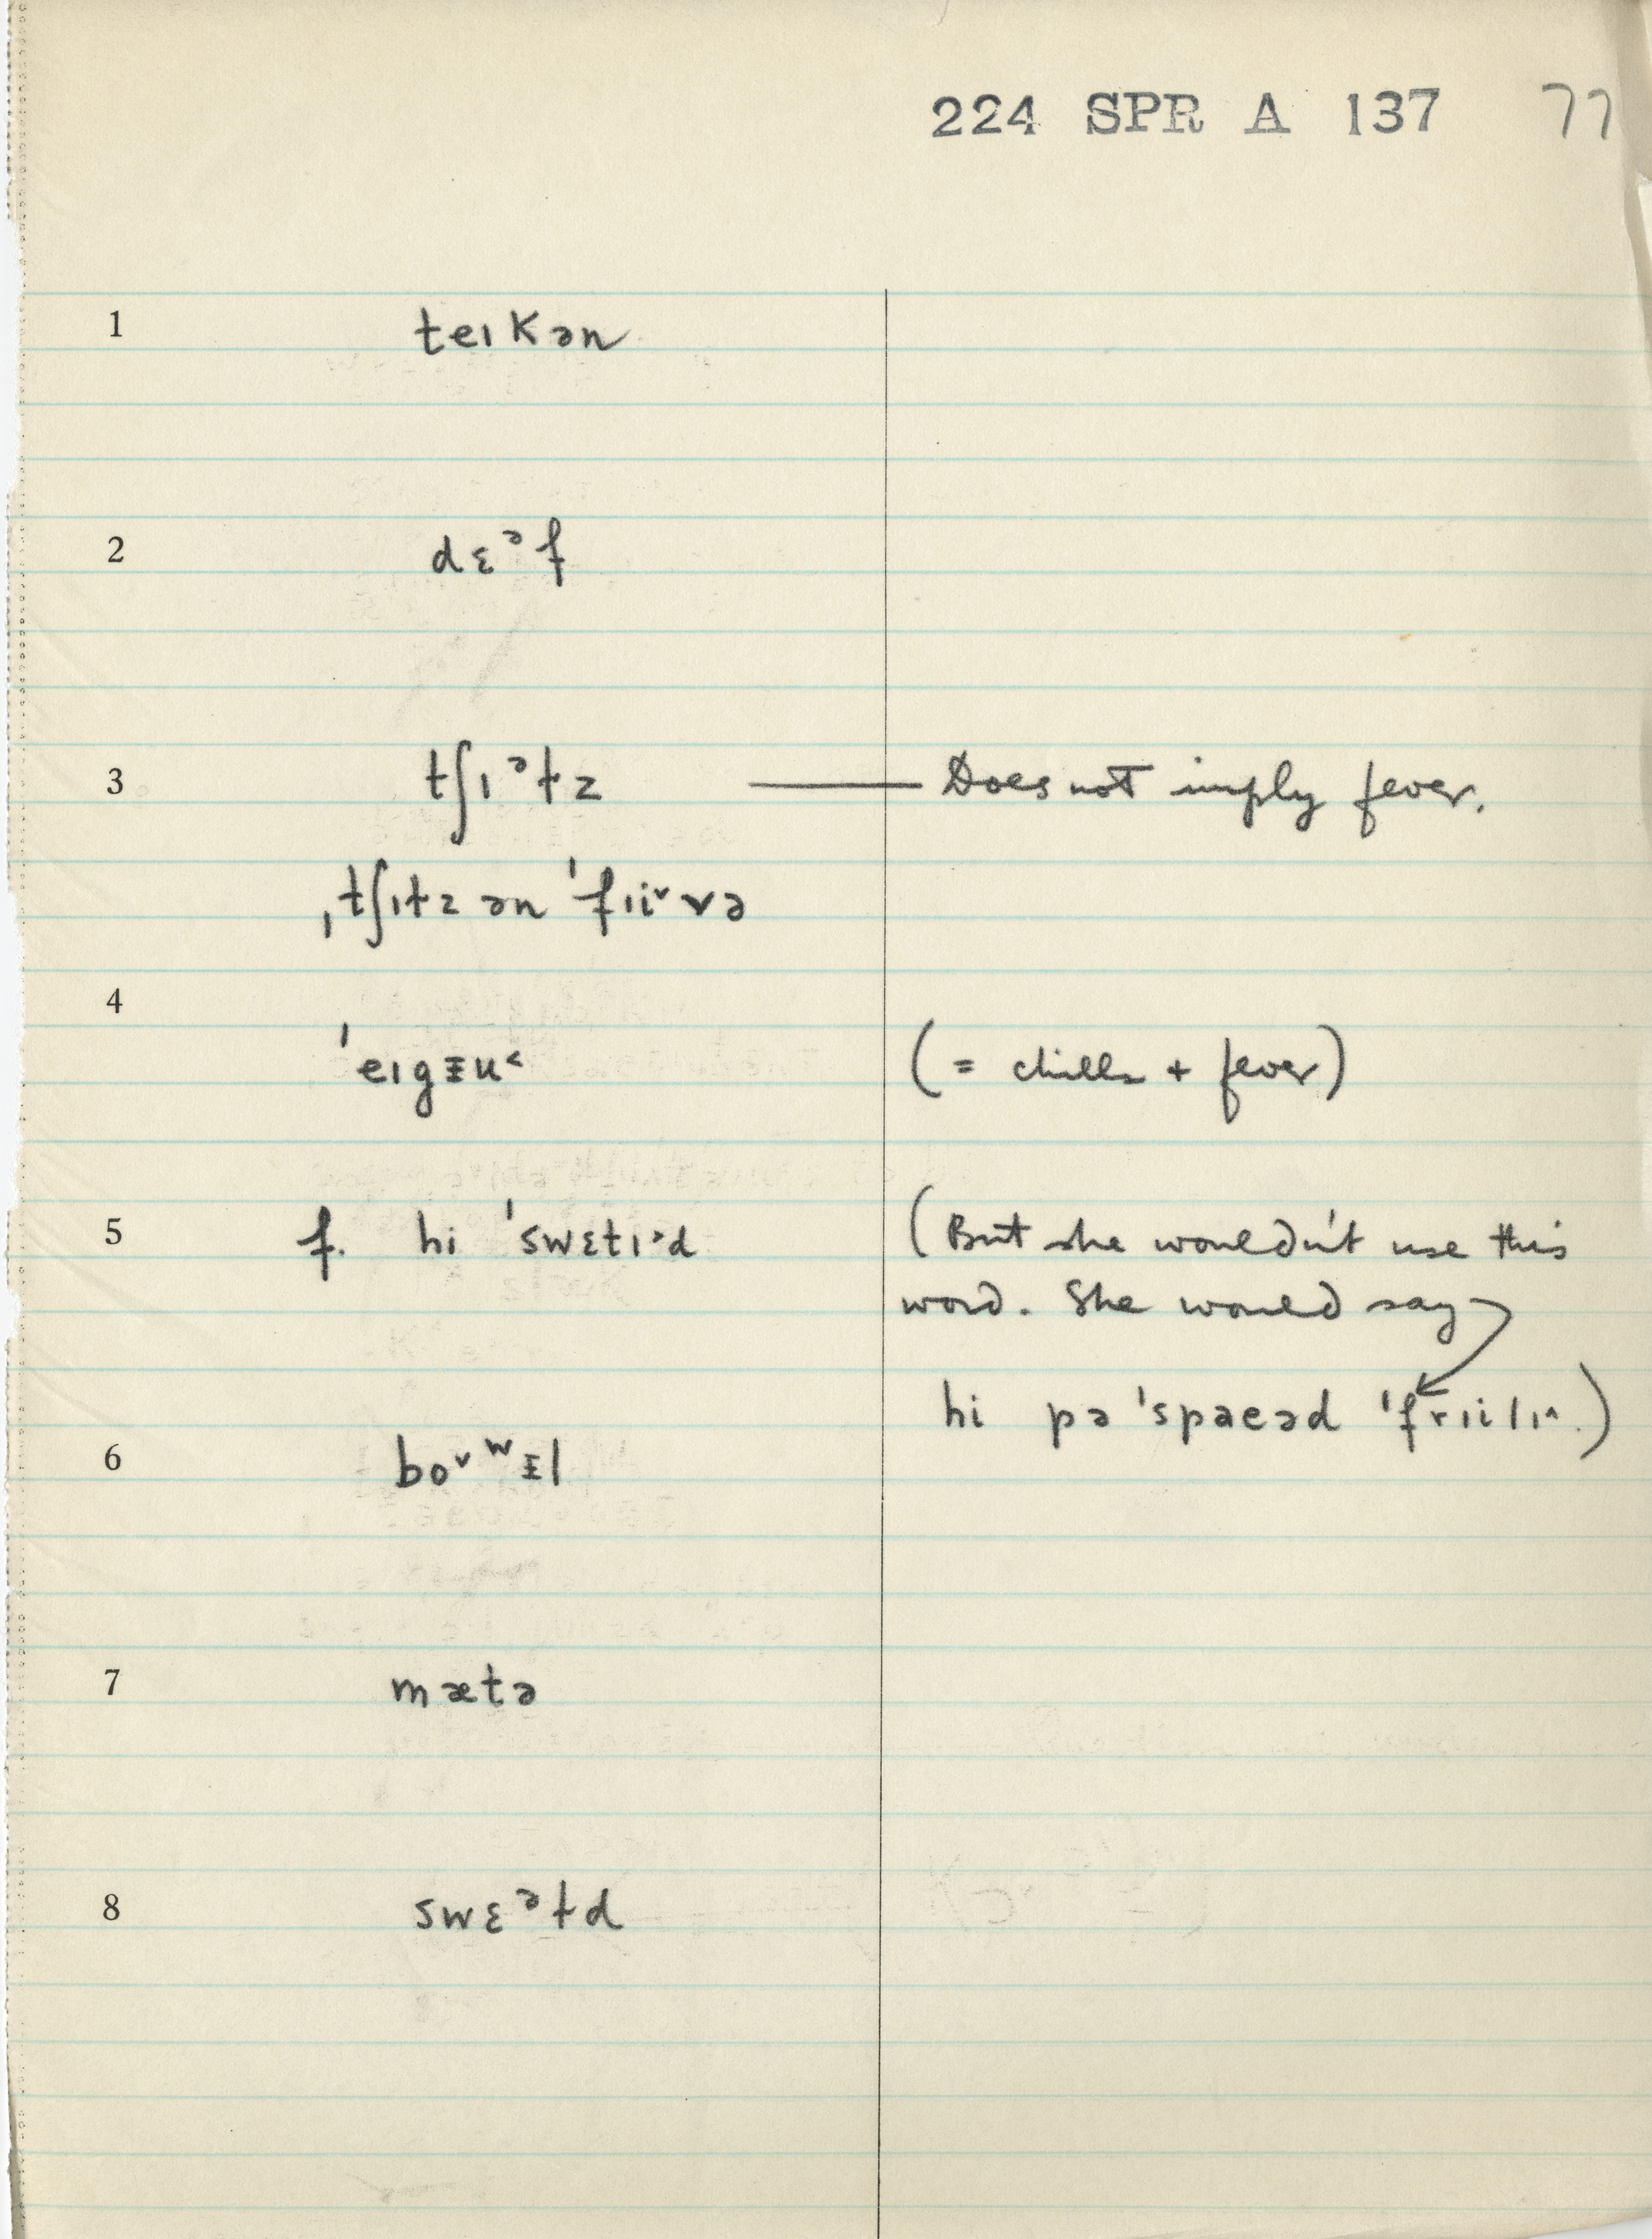 224 SPR A 137 77
1 teɪkən
2 dɛᵊf
3 tʃɪᵊɫz — Does not imply fever.
ˌtʃɪɫz ən ˈfɪi˅və
4
ˈeɪgɪ̵u˂ (= chills + fever)
5 f. hi ˈswɛtɪ˃d (But she wouldn't use this
word. She would say
hi pəˈspaeəd ˈfrɪilɪ˄.)
6 bo˅ʷɪ̵l
7 mætə
8 swɛᵊɫd